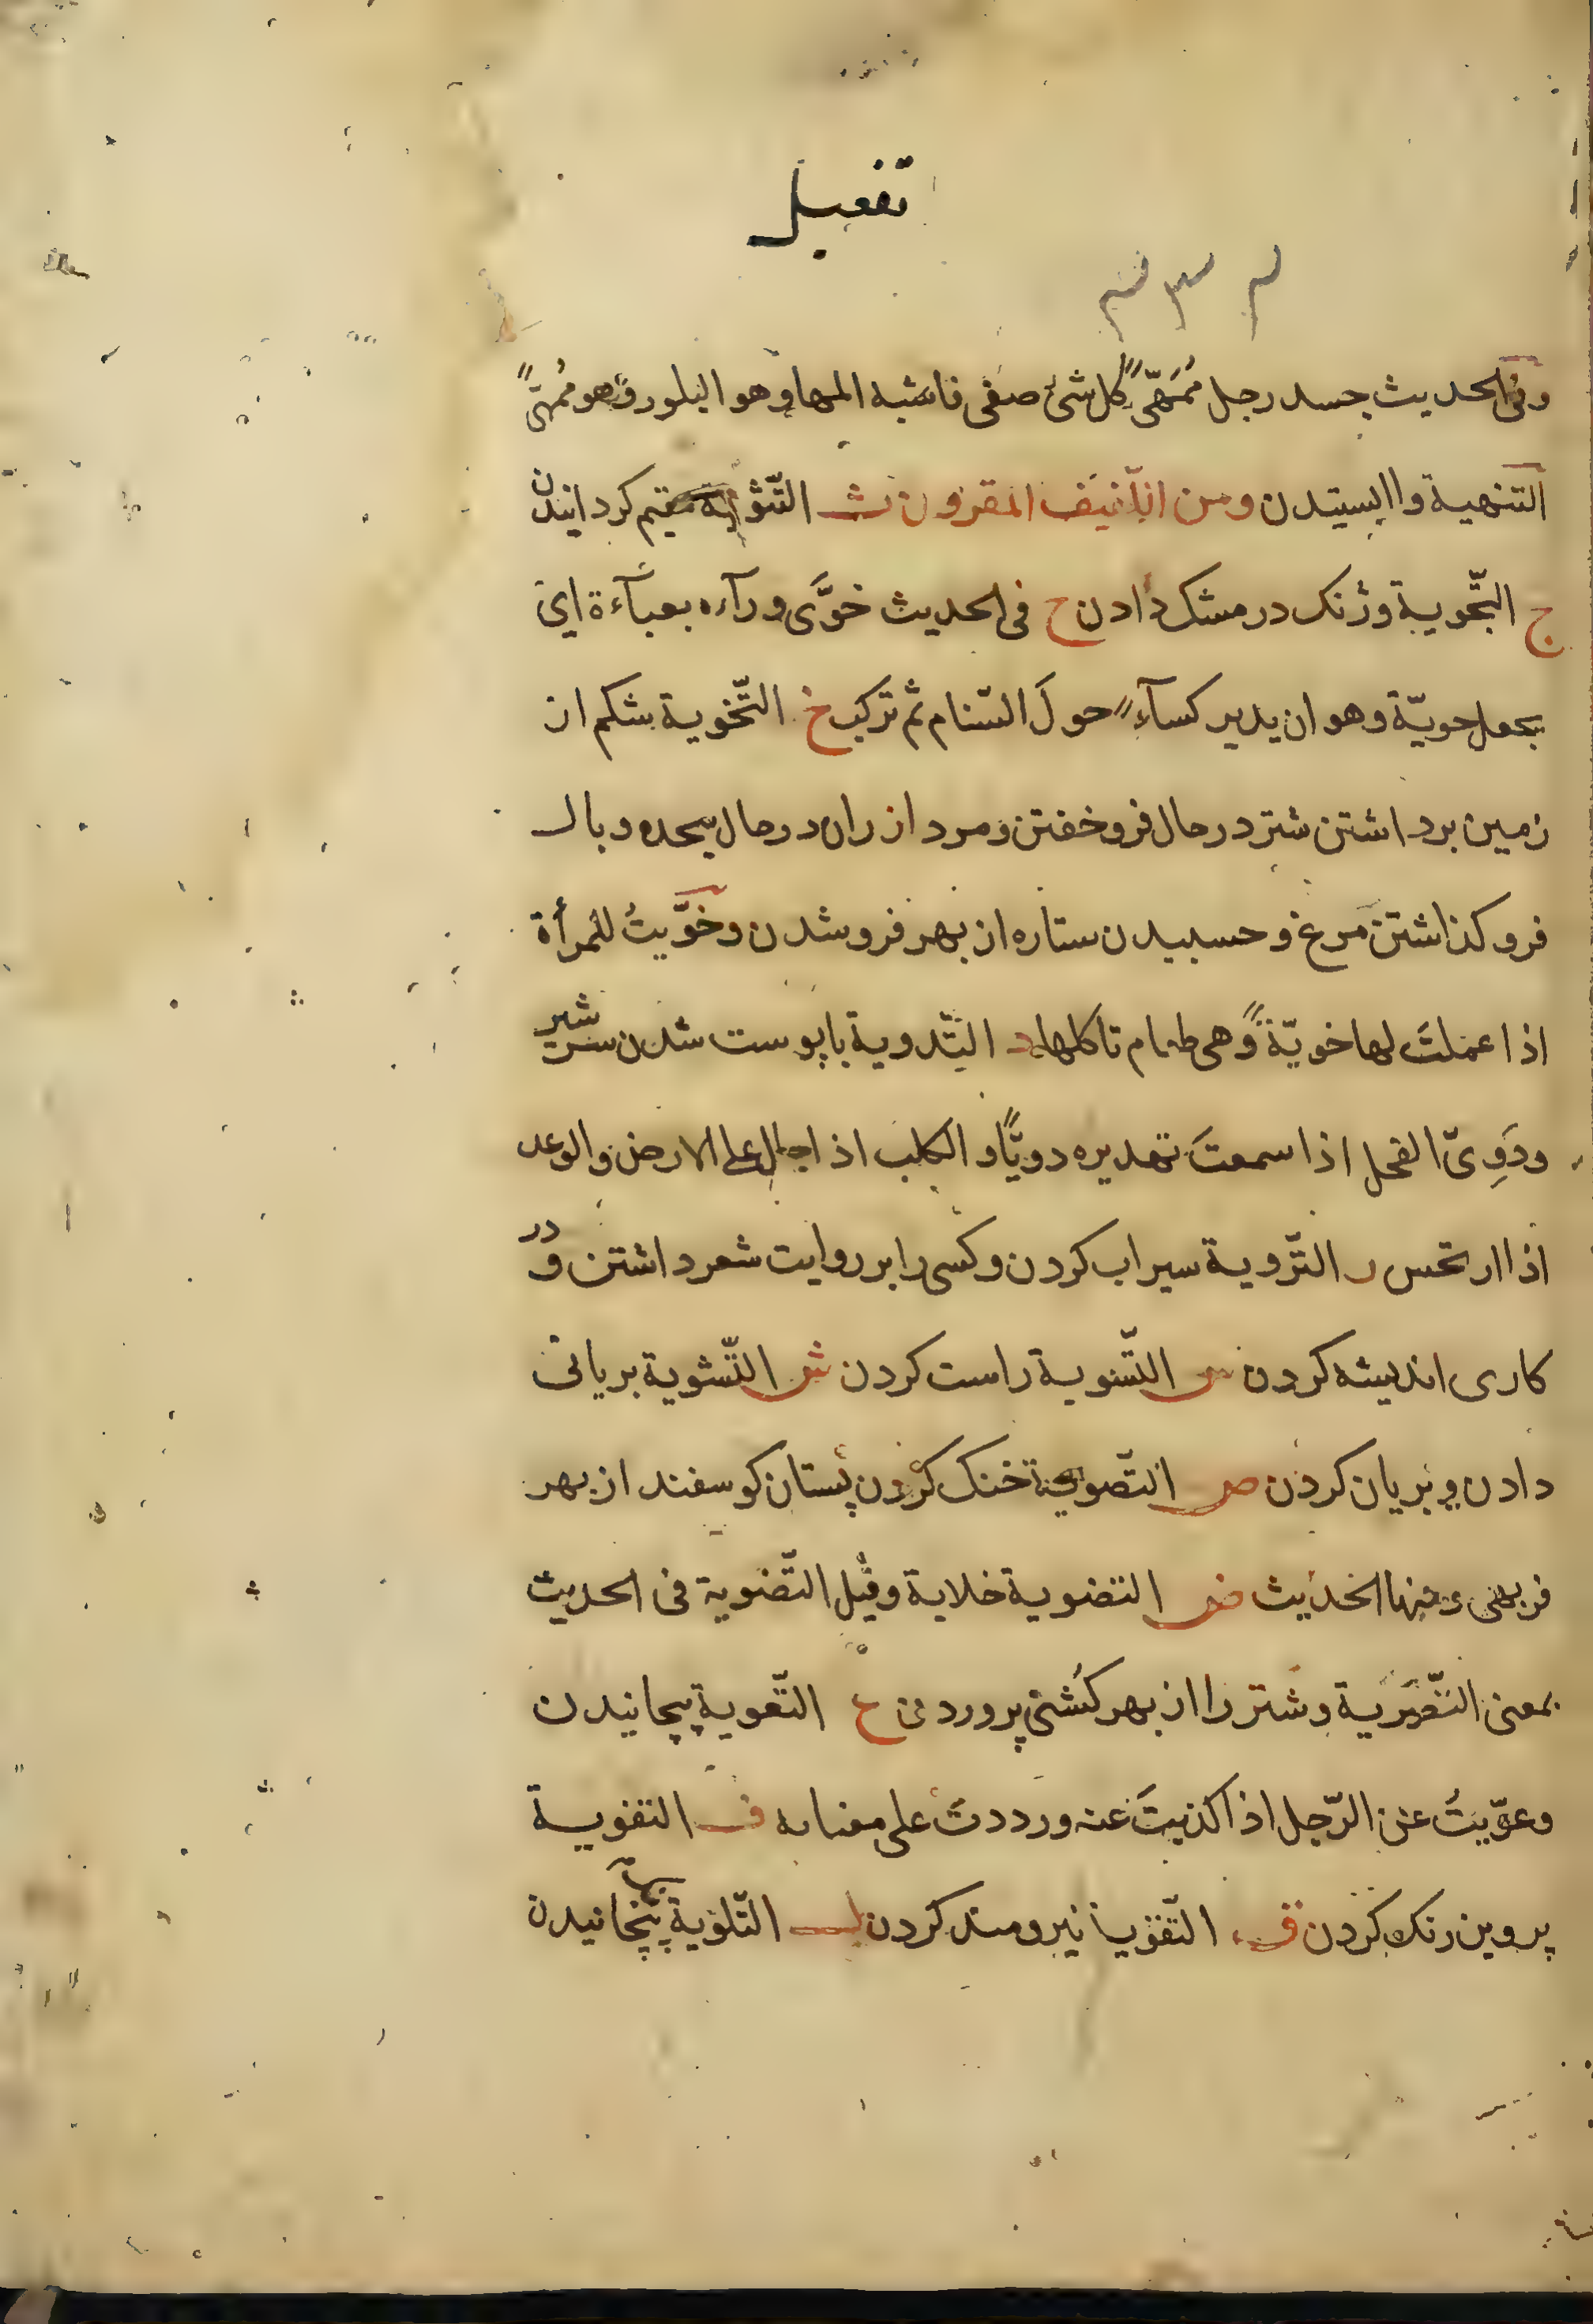 تفعيل
وفى الحديث جسد رجل مُمَهًّى كل شئ صفى فاشبه المها وهو البلور فهو مُمَهًّى
التنهية وا ايستيدن ومن اللفيف المقرون ث التّثوية مقيم كردانيدن
ج التّجوية وژنك در مشك دادن ح فى الحديث حَوَّى ورآءه بعبآءة اى
يجعل حويّة وهو ان يدير كسآءً حولَ السّنام ثم تركب خ التّخوية شكم از
زمين برداشتن شتر در حال فرو خفتن ومرد از ران در حال سجده وبال
فرو كذاشتن مرغ وحسبيدن ستاره از بهر فروشدن وخوَّيتُ للمرأة
اذا عملتَ لها خويّةً وهى طعام تاكلها د التّدوية با پوست شدن سر شير
ودَوِىّ الفحل اذا سمعتَ تهديره دويًّا والكلب اذا جال على الارض والوعد
اذا ارتجس ر التّروية سيراب كردن وكسى را بر روايت شعر داشتن ودر
كارى انديشه كردن س التّسوية راست كردن ش التّشوية بريانى
دادن وبريان كردن ص التّصوية خنك كردن پستان كوسفند از بهر
فربهى ومنها الحديث التّصوية خلابة وقيل التّصوية فى الحديث
بمعنى التّصرية وشتر را از بهر كُشنى پروردن ع التّعوية پيچانيدن
وعوّيتُ عن الرّجل اذا كذبتَ عنه ورددتَ على مغتابه ف التفوية
بروين رنك كردن ق التّقوية نيرومند كردن ل التّلوية پيچانيدن